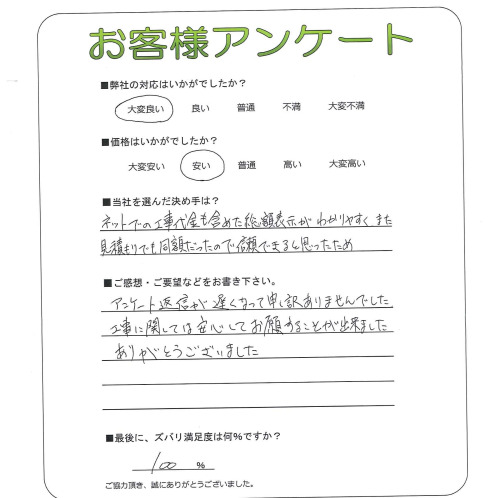 お客様アンケート
■弊社の対応はいかがでしたか？
大変良い 良い 普通 不満 大変不満
■価格はいかがでしたか？
大変安い 安い 普通 高い 大変高い
■当社を選んだ決め手は？
ネットでの工事代金も含めた総額表示がわかりやすく、また
見積もりでも同額だったので信頼できると思ったため
■ご感想・ご要望などをお書き下さい。
アンケート返信が遅くなって申し訳ありませんでした
工事に関しては安心してお願することが出来ました
ありがとうございました
■最後に、ズバリ満足度は何％ですか？
100 ％
ご協力頂き、誠にありがとうございました。